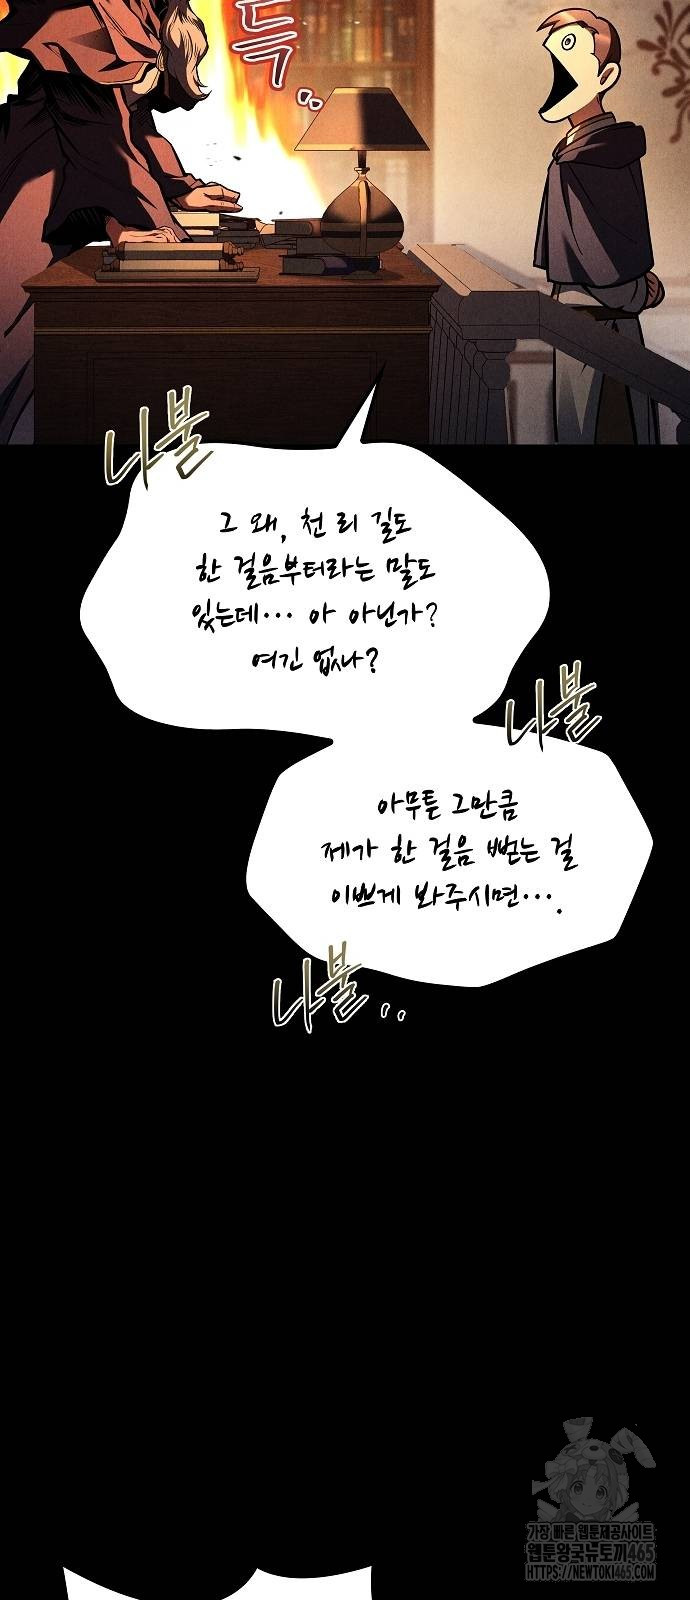 득..
나불
그 왜, 천 리 길도
한 걸음부터라는 말도
있는데... 아 아닌가?
여긴 없나?
나불
아무튼 그만큼
제가 한 걸음 뻗는 걸
이쁘게 봐주시면....
나불..
가장 빠른 웹툰제공사이트
웹툰왕국뉴토끼465
HTTPS://NEWTOKI465.COM